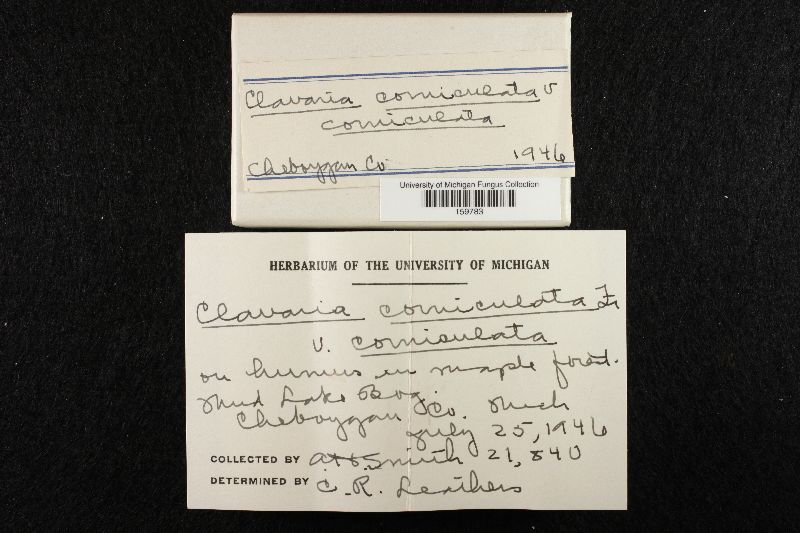 Clavaria corniculata v
corniculata
Cheboygan Co 1946
University of Michigan Fungus Collection
159783
HERBARIUM OF THE UNIVERSITY OF MICHIGAN
Clavaria corniculata Fr
v. corniculata
on humus in maple forest.
Mud Lake Bog.
Cheboygan Co. Mich
July 25, 1946
COLLECTED BY A.H. Smith 21,840
DETERMINED BY C.R. Leathers